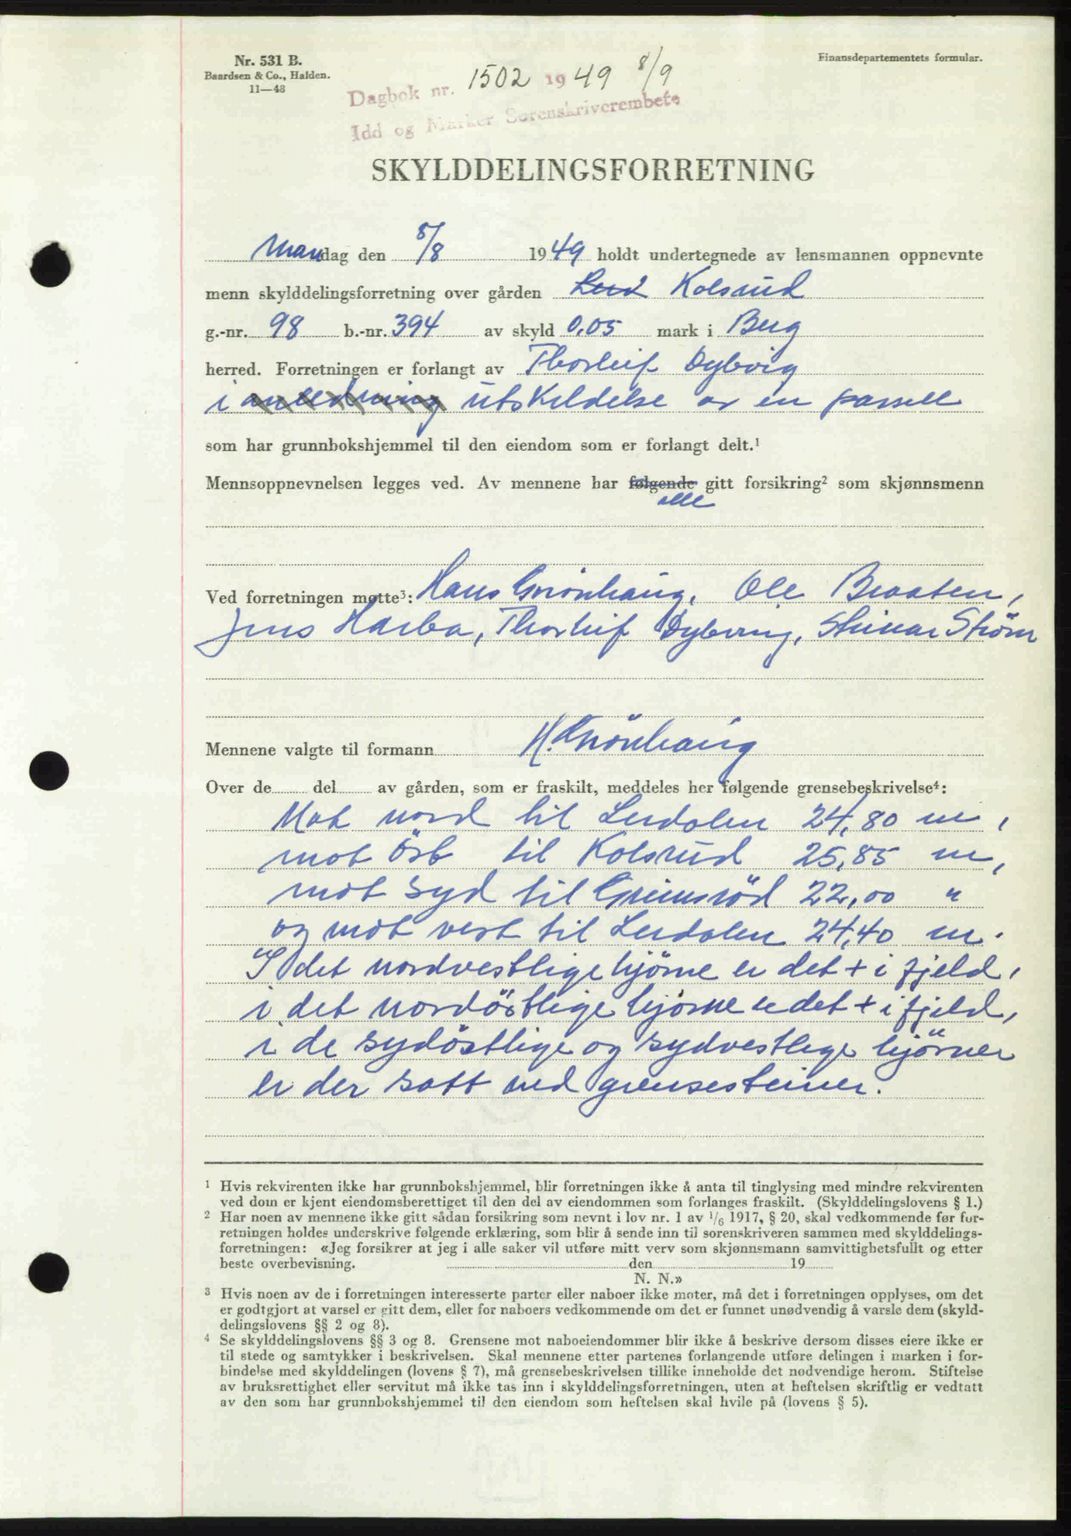 Nr. 531 B.
Baardsen & Co., Halden.
11—48
Finansdepartementets formular.
Dagbok nr. 1502 1949 8/9
Idd og Marker Sorenskriverembete
SKYLDDELINGSFORRETNING
Mandag den 8/8 1949 holdt undertegnede av lensmannen oppnevnte
menn skylddelingsforretning over gården Kolsrud
g.-nr. 98 b.-nr. 394 av skyld 0,05 mark i Berg
herred. Forretningen er forlangt av Thorleif Dybvig
i anledning utskildelse av en parsell
som har grunnbokshjemmel til den eiendom som er forlangt delt.¹
Mennsoppnevnelsen legges ved. Av mennene har følgende gitt forsikring² som skjønnsmenn
alle
Ved forretningen møtte³: Hans Grönhaug, Ole Braaten,
Jens Harba, Thorleif Dybvig, Steinar Ström
Mennene valgte til formann H. Grönhaug
Over de........ del........ av gården, som er fraskilt, meddeles her følgende grensebeskrivelse⁴:
Mot nord til Lerdalen 24,80 m,
mot öst til Kolsrud 25,85 m,
mot syd til Grimsröd 22,00 "
og mot vest til Lerdalen 24,40 m.
I det nordvestlige hjörne er det + i fjeld,
i det nordöstlige hjörne er det + i fjeld,
i de sydöstlige og sydvestlige hjörner
er der satt ned grensesteiner.
¹ Hvis rekvirenten ikke har grunnbokshjemmel, blir forretningen ikke å anta til tinglysing med mindre rekvirenten
ved dom er kjent eiendomsberettiget til den del av eiendommen som forlanges fraskilt. (Skylddelingslovens § 1.)
² Har noen av mennene ikke gitt sådan forsikring som nevnt i lov nr. 1 av 1/6 1917, § 20, skal vedkommende før for-
retningen holdes underskrive følgende erklæring, som blir å sende inn til sorenskriveren sammen med skylddelings-
forretningen: «Jeg forsikrer at jeg i alle saker vil utføre mitt verv som skjønnsmann samvittighetsfullt og etter
beste overbevisning. ........ den ........ 19 ........
N. N.»
³ Hvis noen av de i forretningen interesserte parter eller naboer ikke møter, må det i forretningen opplyses, om det
er godtgjort at varsel er gitt dem, eller for naboers vedkommende om det er funnet unødvendig å varsle dem (skyld-
delingslovens §§ 2 og 8).
⁴ Se skylddelingslovens §§ 3 og 8. Grensene mot naboeiendommer blir ikke å beskrive dersom disses eiere ikke er
til stede og samtykker i beskrivelsen. Skal mennene etter partenes forlangende utføre delingen i marken i for-
bindelse med skylddelingen (lovens § 7), må grensebeskrivelsen tillike inneholde det nødvendige herom. Stiftelse
av bruksrettighet eller servitut må ikke tas inn i skylddelingsforretningen, uten at heftelsen skriftlig er vedtatt
av den som har grunnbokshjemmel til den eiendom som heftelsen skal hvile på (lovens § 5).